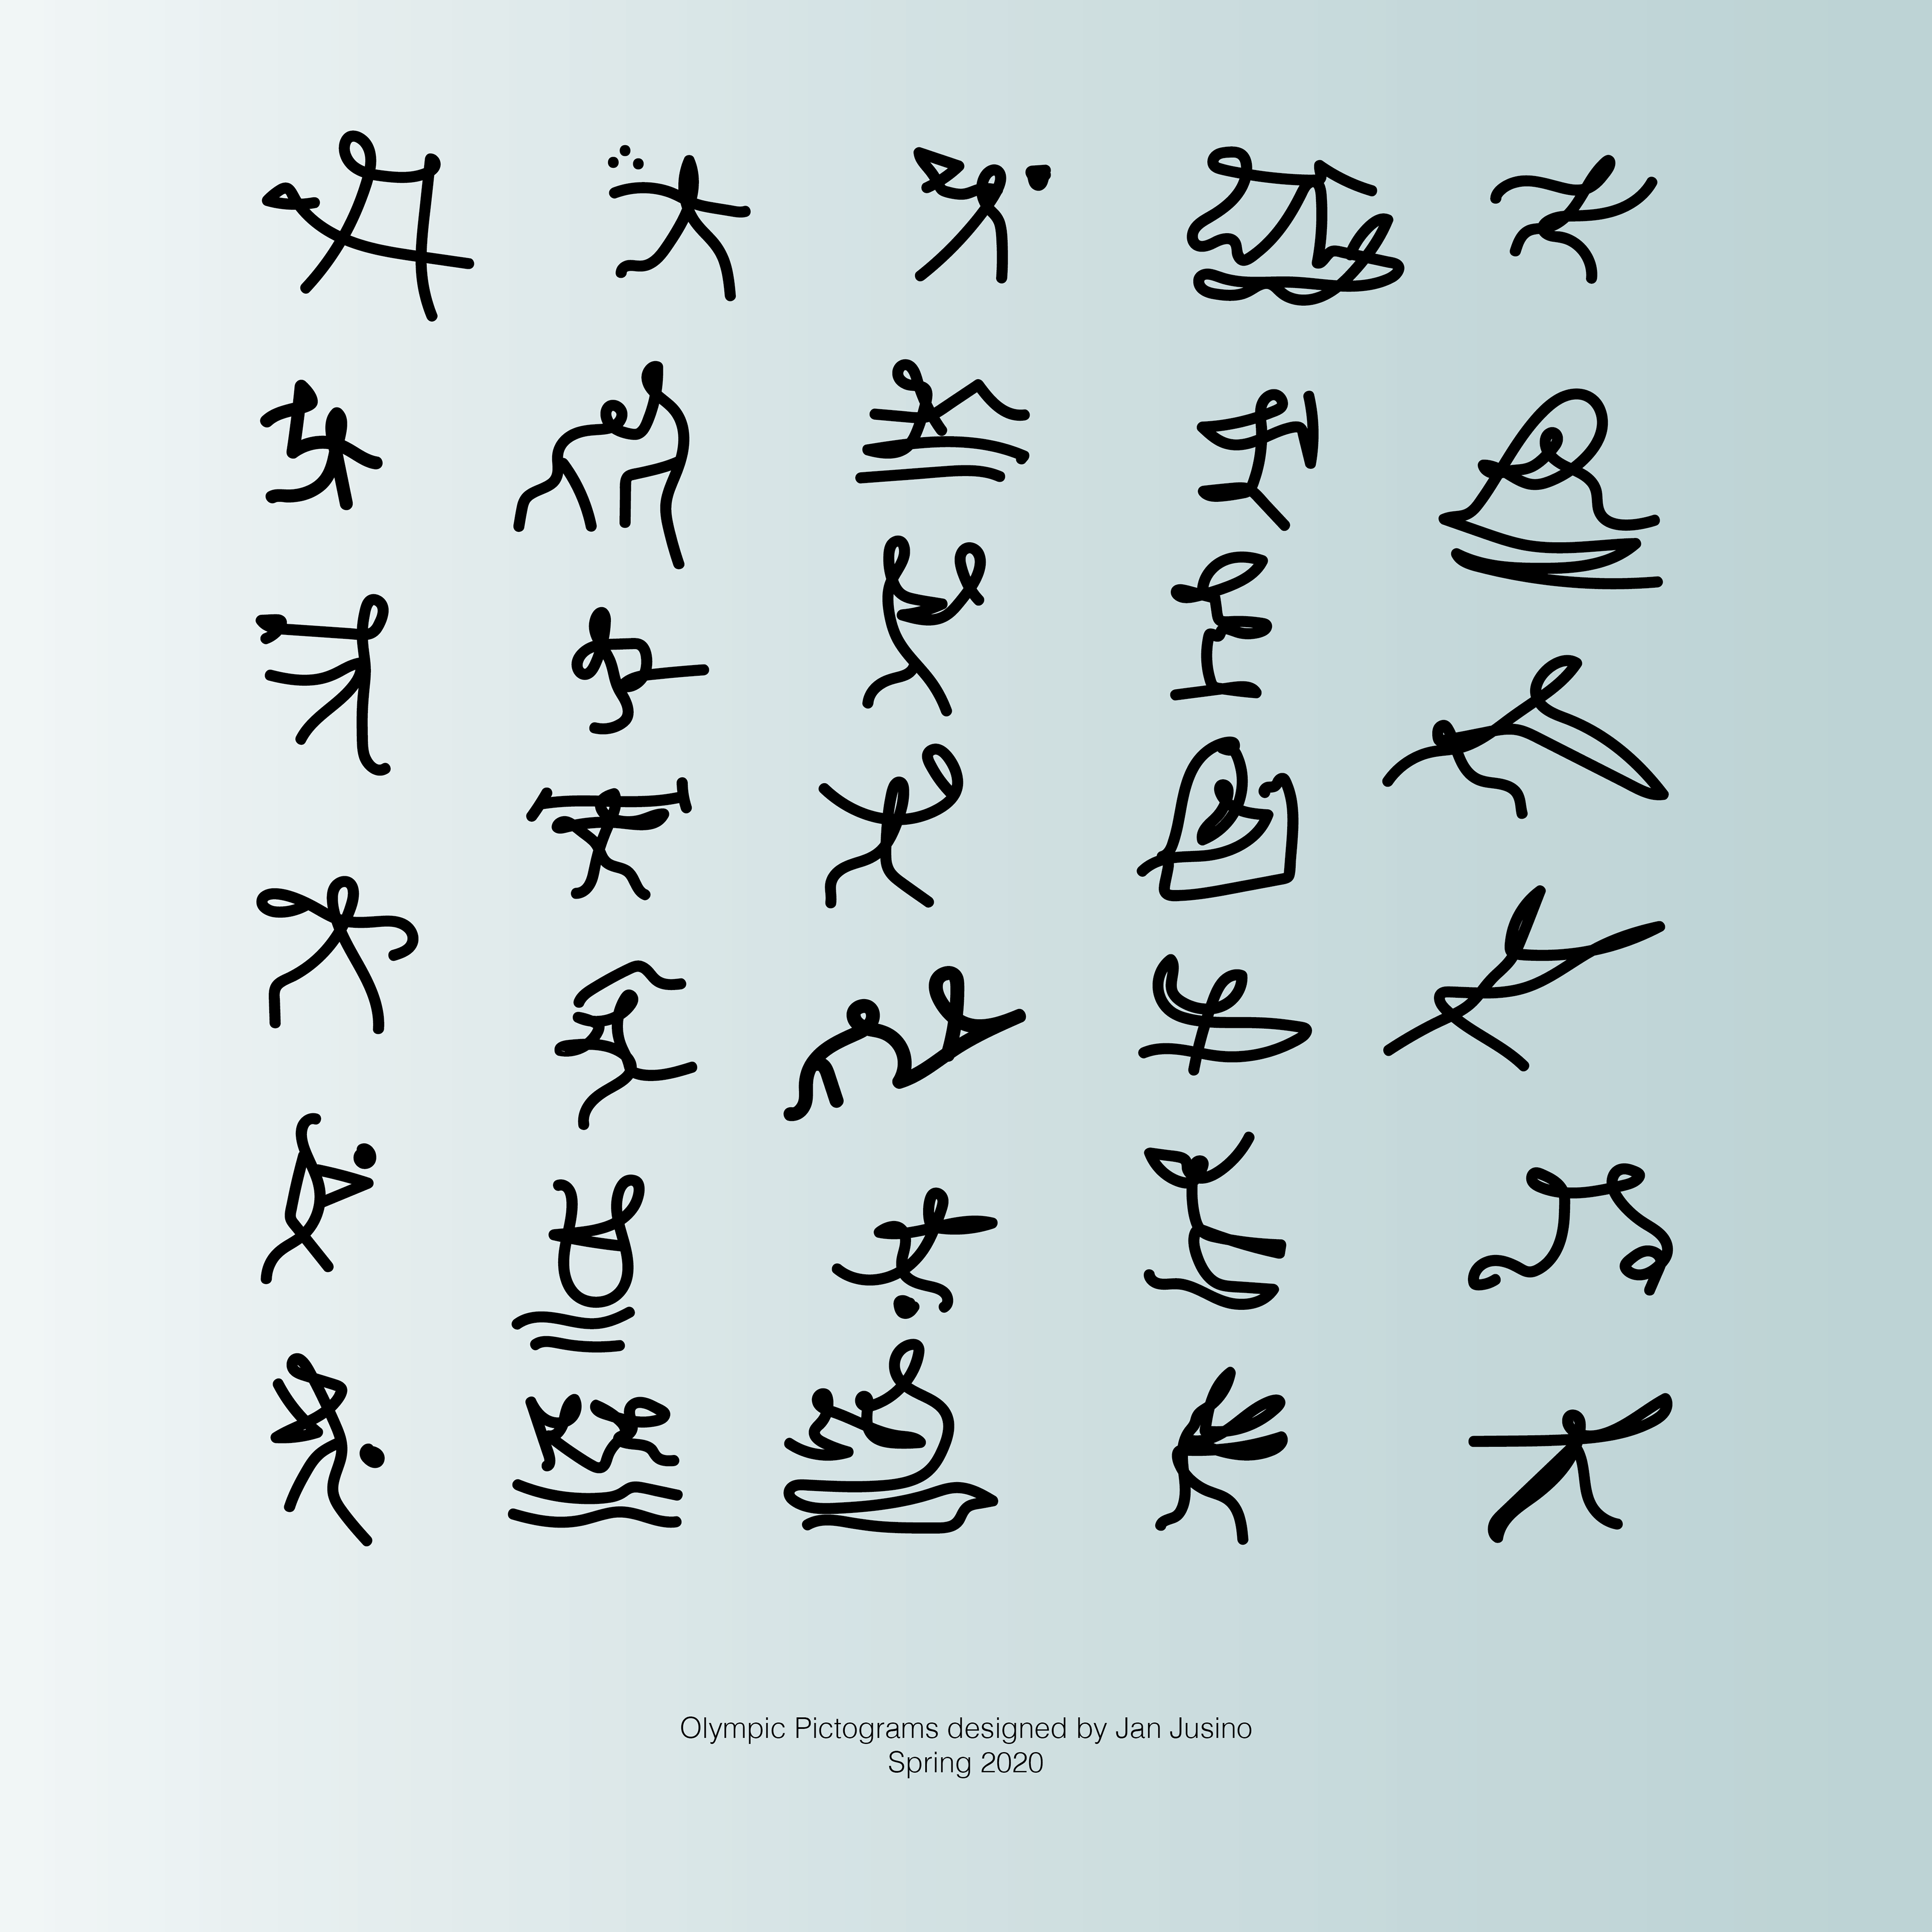 Olympic Pictograms designed by Jan Jusino
Spring 2020